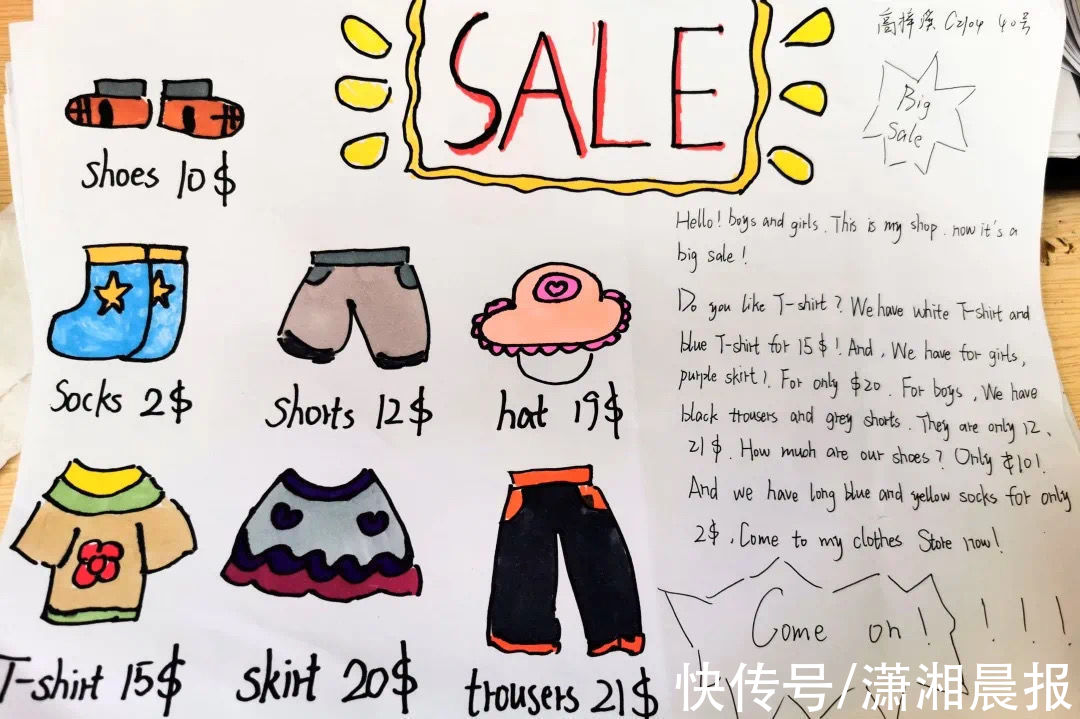 SALE
高梓溪 C2104 40号
Big
Sale
shoes 10$
Socks 2$
shorts 12$
hat 19$
T-shirt 15$
skirt 20$
trousers 21$
Hello! boys and girls. This is my shop. now it's a
big sale!
Do you like T-shirt? We have white T-shirt and
blue T-shirt for 15$! And, We have for girls,
purple skirt!. For only $20. For boys, We have
black trousers and grey shorts. They are only 12、
21$. How much are our shoes? Only $10!
And we have long blue and yellow socks for only
2$. Come to my clothes Store now!
Come on! ! ! !
快传号/潇湘晨报